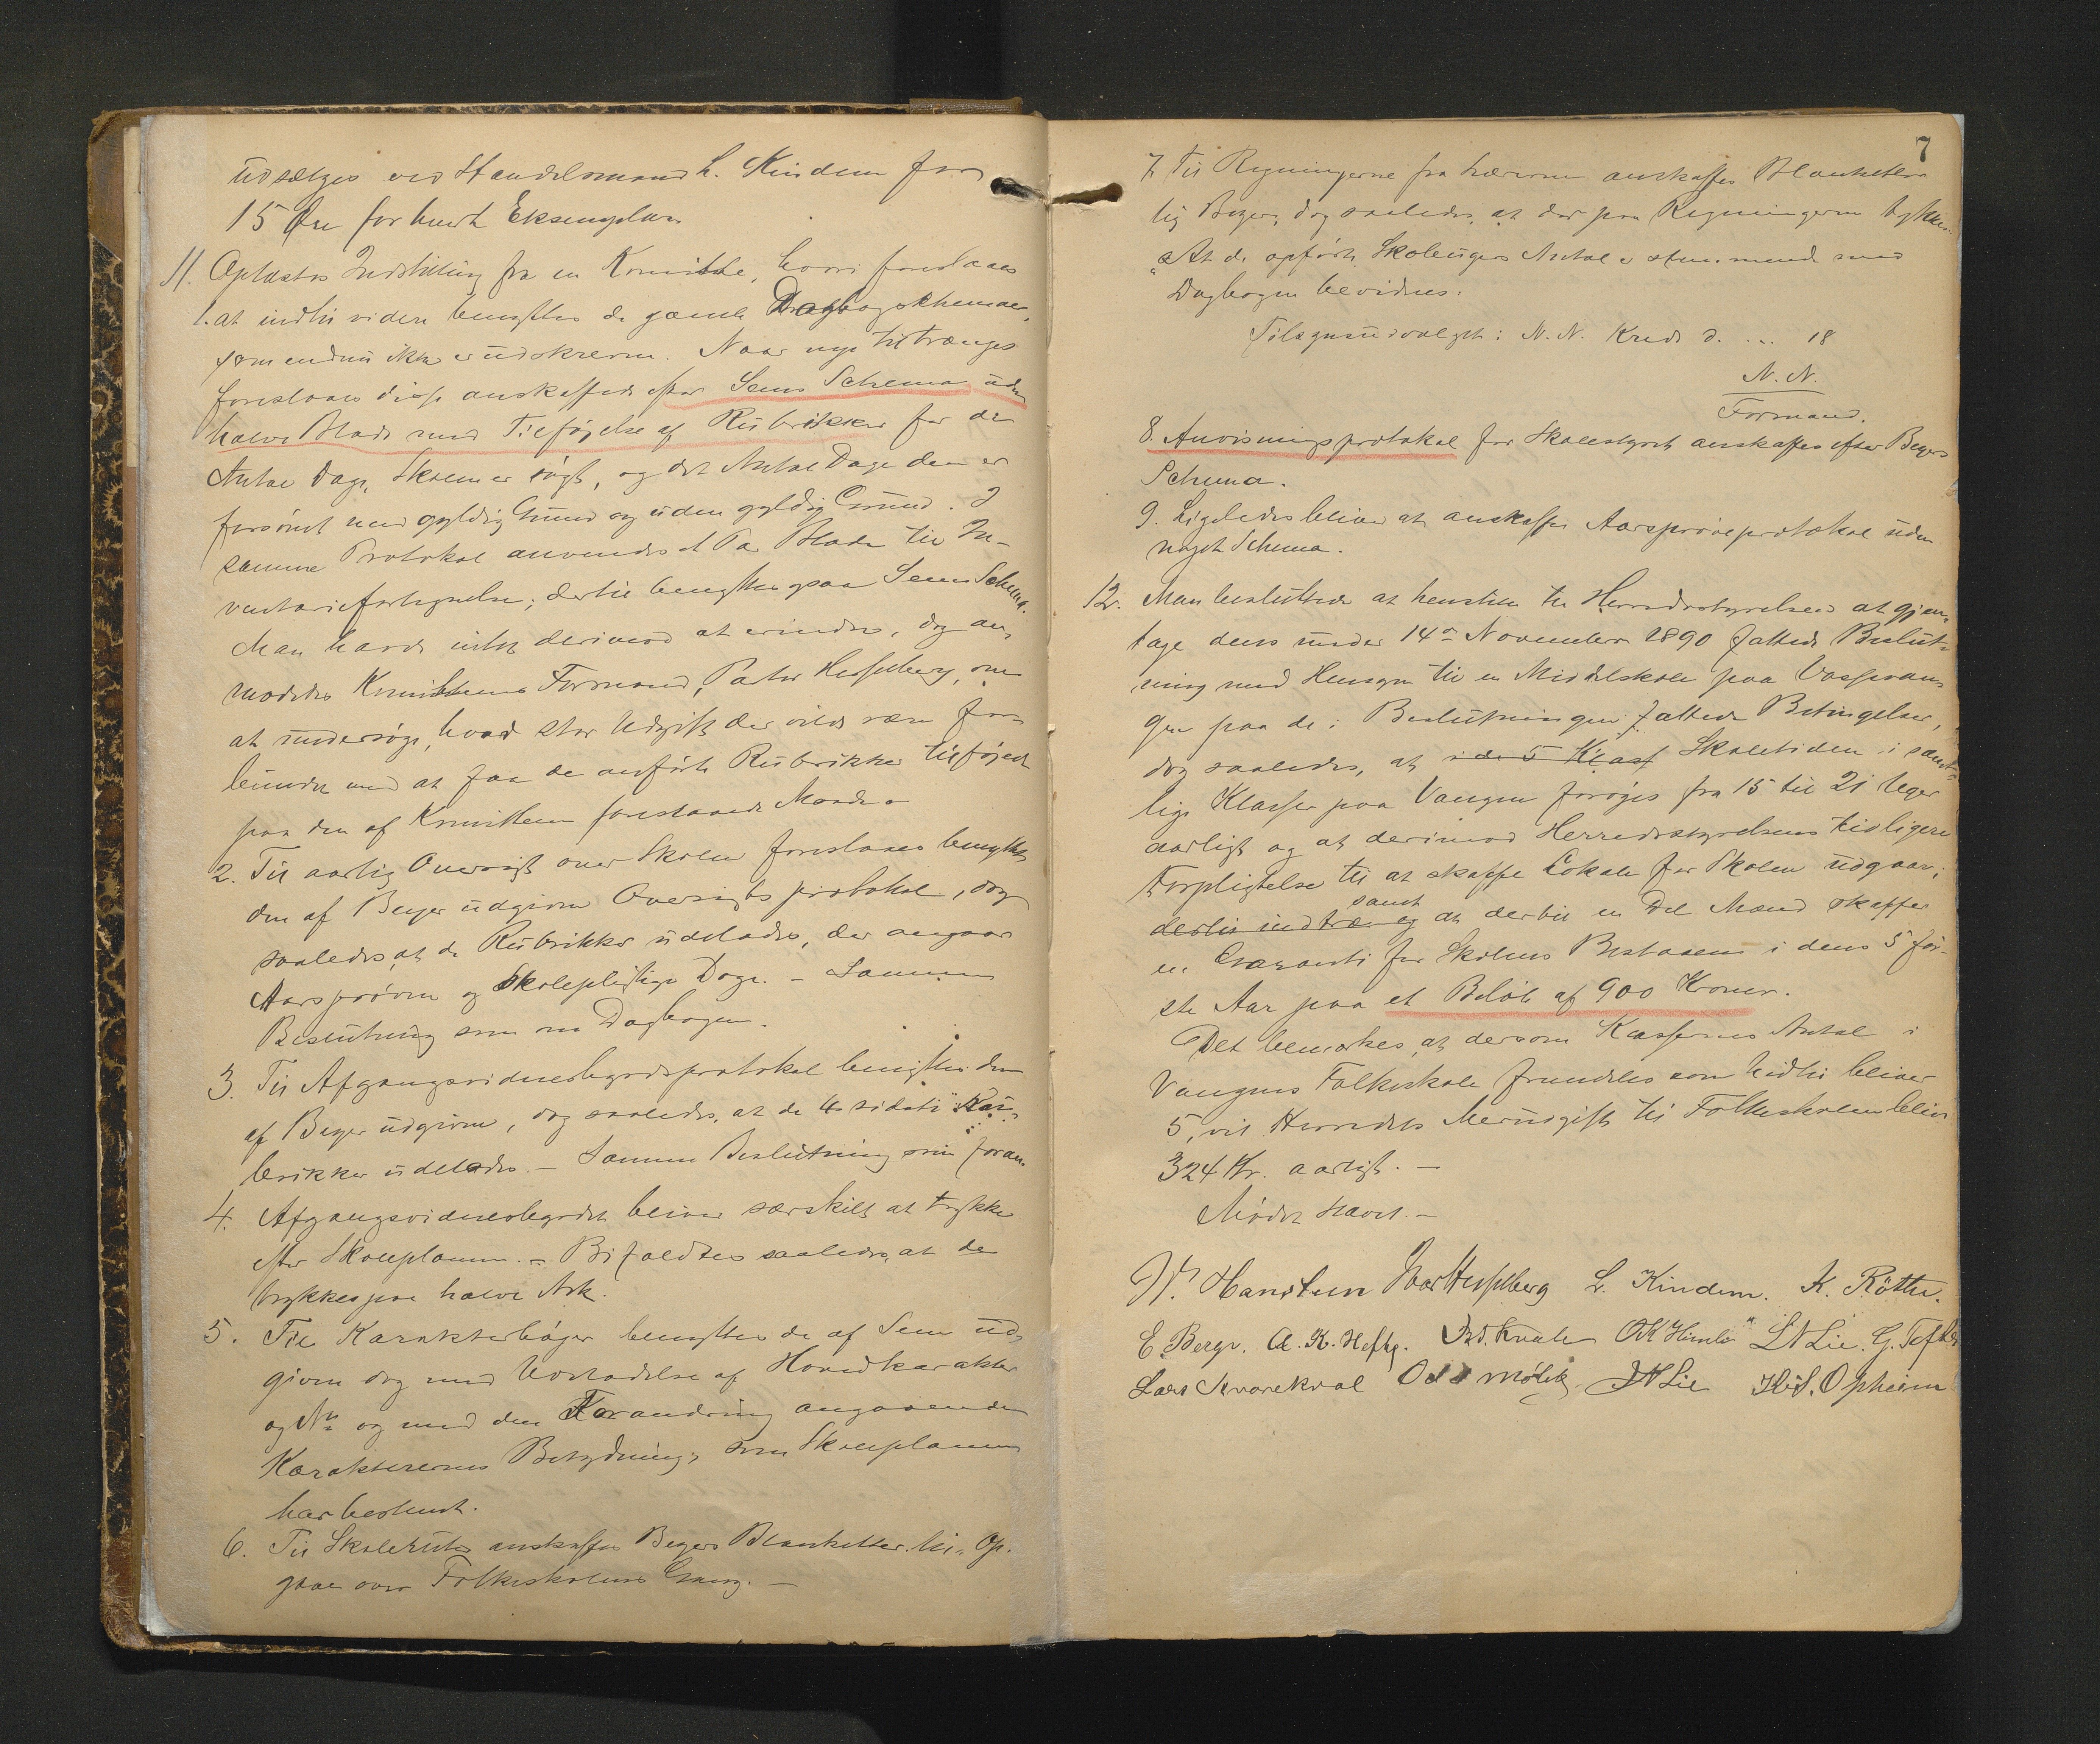 udsælges ved Handelsmand L. Kindem for
15 Øre for hvert Eksemplar
11. Oplæstes Indstilling fra en Komitte, hvori foreslaaes
1. at indtil videre benyttes de gamle Dagbogskhemaer,
som endnu ikke er udskrevne. Naar nye tiltrænges
foreslaaes disse anskaffede efter Sems Schema uden
halve Blade med Tilføjelse af Rubrikker for det
Antal Dage, Skolen er søgt, og det Antal Dage den er
forsømt med gyldig Grund og uden gyldig Grund. I
samme Protokol anvendes et Par Blade til In-
ventariefortegnelse; dertil benyttes ogsaa Sems Schema.
Man havde intet derimod at erindre, dog an-
modedes Komitteens Formand, Pastor Hesselberg, om
at undersøge, hvad stor Udgift der vilde være for-
bundet med at faa de anførte Rubrikker tilføjede
paa den af Komitteen foreslaaede Maade.
2. Til aarlig Oversigt over Skolen foreslaaes benyttet
den af Beyer udgivne Oversigtsprotokol, dog
saaledes, at de Rubrikker udelades, der angaar
Aarsprøven og Skolepligtige Dage. – Samme
Beslutning som om Dagbogen.
3. Til Afgangsvidnesbyrdsprotokol benyttes den
af Beyer udgivne, dog saaledes, at de 4 sidste Ru-
brikker udelades. – Samme Beslutning som foran.
4. Afgangsvidnesbyrdet bliver særskilt at trykke
efter Skoleplanen. – Bifaldtes saaledes, at de
trykkes paa halve Ark.
5. Til Karakterbøger benyttes de af Sem ud-
givne dog med Udeladelse af Hovedkarakter
og Nr. og med den Forandring angaaende
Karakterernes Betydning, som Skoleplanen
har bestemt.
6. Til Skoleruter anskaffes Beyers Blanketter til Op-
gave over Folkeskolens Gang. –
7
7. Til Regningerne fra Lærerne anskaffes Blanketter
lig Beyers, dog saaledes, at der paa Regningerne trykkes:
"At de opførte Skoleugers Antal er stemmende med
Dagbogen bevidnes.
Tilsynsudvalget i N. N. Kreds d. ... 18
N. N.
Formand.
8. Anvisningsprotokol for Skolestyret anskaffes efter Beyers
Schema.
9. Ligeledes bliver at anskaffe Aarsprøveprotokol uden
noget Schema.
12. Man besluttede at henstille til Herredsstyrelsen at gjen-
tage dens under 14de November 1890 fattede Beslut-
ning med Hensyn til en Middelskole paa Vossevan-
gen paa de i Beslutningen fattede Betingelser,
dog saaledes, at i de 5 Klass Skoletiden i samt-
lige Klasser paa Vangen forøges fra 15 til 21 Uger
aarligt og at derimod Herredsstyrelsens tidligere
Forpligtelse til at skaffe Lokale for Skolen udgaar;
samt
dertil indtræ og at dertil en Del Mænd skaffer
en Garanti for Skolens Bestaaen i dens 5 før-
ste Aar paa et Beløb af 900 Kroner.
Det bemærkes, at dersom Klassernes Antal i
Vangens Folkeskole fremdeles som hidtil bliver
5, vil Herredets Merudgift til Folkeskolen blive
324 Kr. aarligt. –
Mødet hævet. –
W. Hansteen Ivar Hesselberg L. Kindem. K. Röthe.
E. Berge. A. K. Hefte. Bd. Kvale OK Himle L N Lie. G. Tefte
Lars Kvarekval Odd Mølster J N Lie Kd. S. Opheim